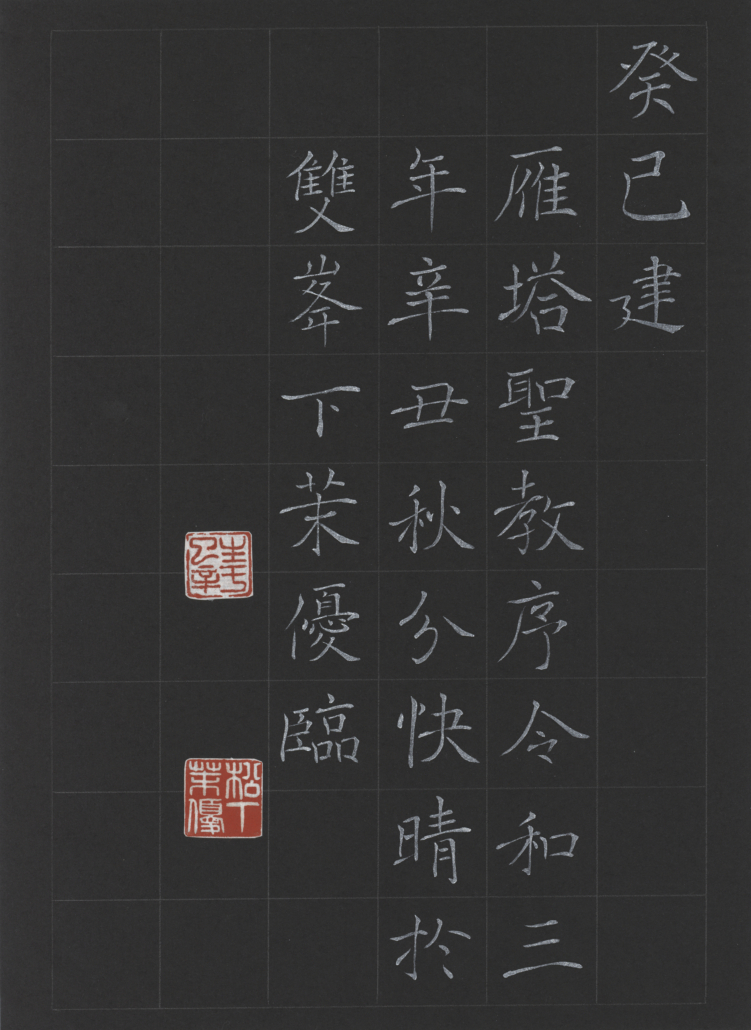 癸巳建
雁塔聖教序令和三
年辛丑秋分快晴於
雙峯下茉優臨
松下茉優